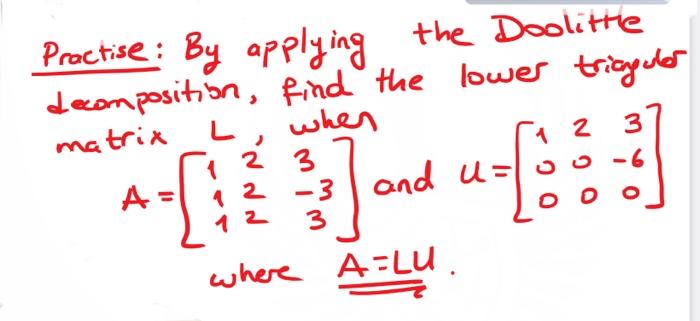 Practise: By applying the Doolittle
decomposition, find the lower triangular
matrix L, when
A = [1 2 3
1 2 -3
1 2 3] and U = [1 2 3
0 0 -6
0 0 0]
where A=LU.